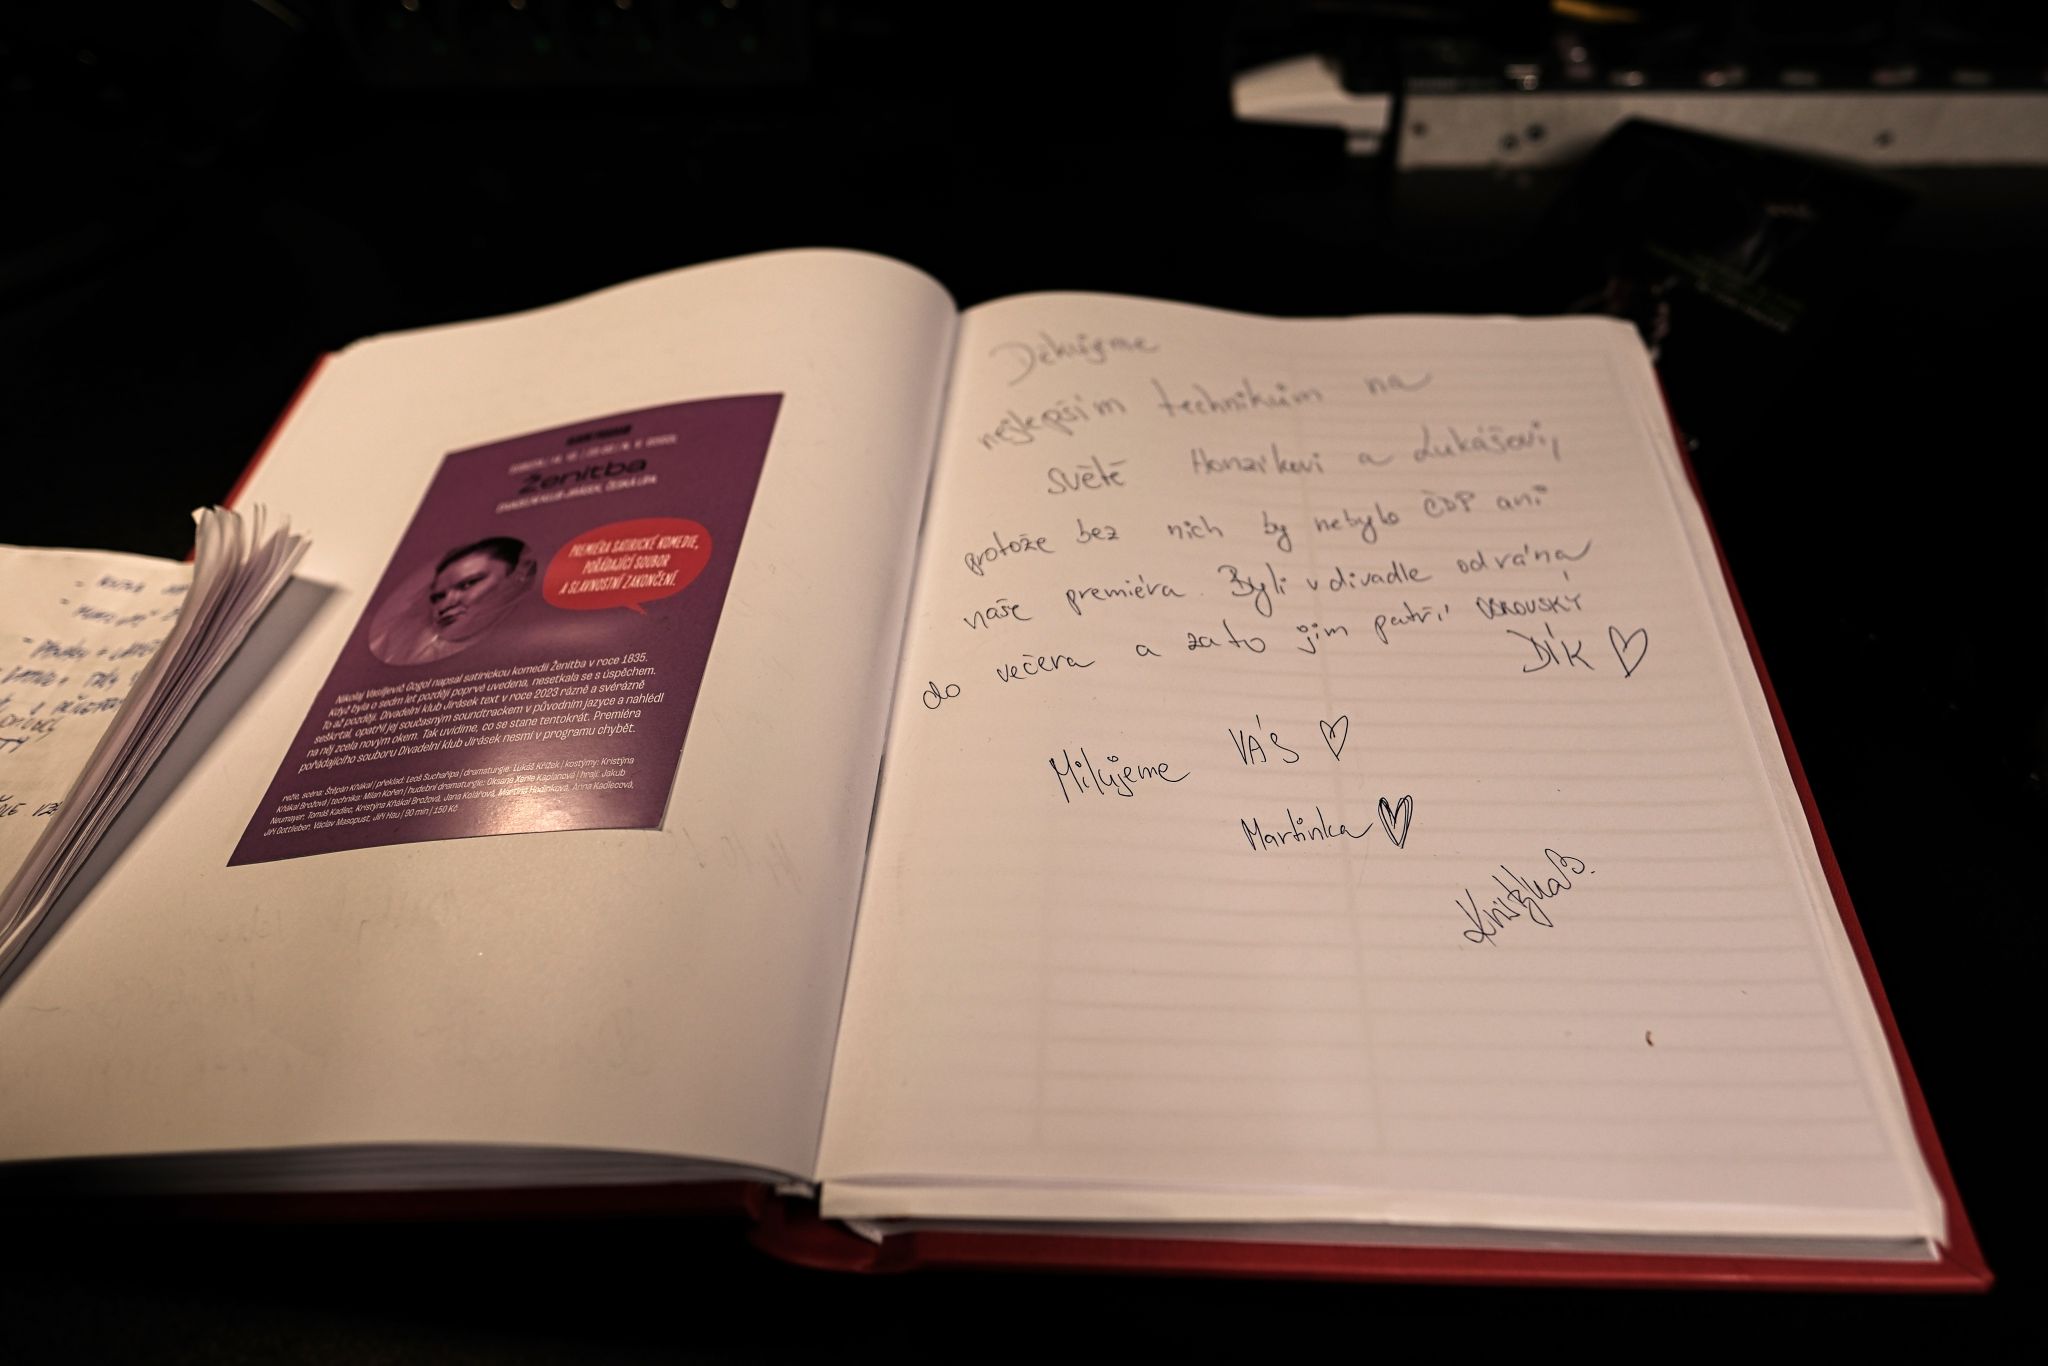 Ženitba
DIVADELNÍ KLUB JIRÁSEK, ČESKÁ LÍPA
PREMIÉRA SATIRICKÉ KOMEDIE,
POŘÁDAJÍCÍ SOUBOR
A SLAVNOSTNÍ ZAKONČENÍ.
Nikolaj Vasiljevič Gogol napsal satirickou komedii Ženitba v roce 1835.
Když byla o sedm let později poprvé uvedena, nesetkala se s úspěchem.
To až později. Divadelní klub Jirásek text v roce 2023 rázně a svérázně
seškrtal, opatřil jej současným soundtrackem v původním jazyce a nahlédl
na něj zcela novým okem. Tak uvidíme, co se stane tentokrát. Premiéra
pořádajícího souboru Divadelní klub Jirásek nesmí v programu chybět.
režie, scéna: Štěpán Kňákal | překlad: Leoš Suchařípa | dramaturgie: Lukáš Křížek | kostýmy: Kristýna
Kňákal Brožová | technika: Milan Kořen | hudební dramaturgie: Oksana Xenie Kaplanová | hrají: Jakub
Neumayer, Tomáš Kadlec, Kristýna Kňákal Brožová, Jana Kolářová, Martina Hodinková, Anna Kadlecová,
Jiří Gottlieber, Václav Masopust, Jiří Hau | 90 min | 150 Kč
Děkujeme
nejlepším technikům na
světě Honzíkovi a Lukášovi,
protože bez nich by nebylo ČDP ani
naše premiéra. Byli v divadle od rána
do večera a za to jim patří OBROVSKÝ
DÍK ♡
Milujeme VÁS ♡
Martinka ♡
Kristýna B.